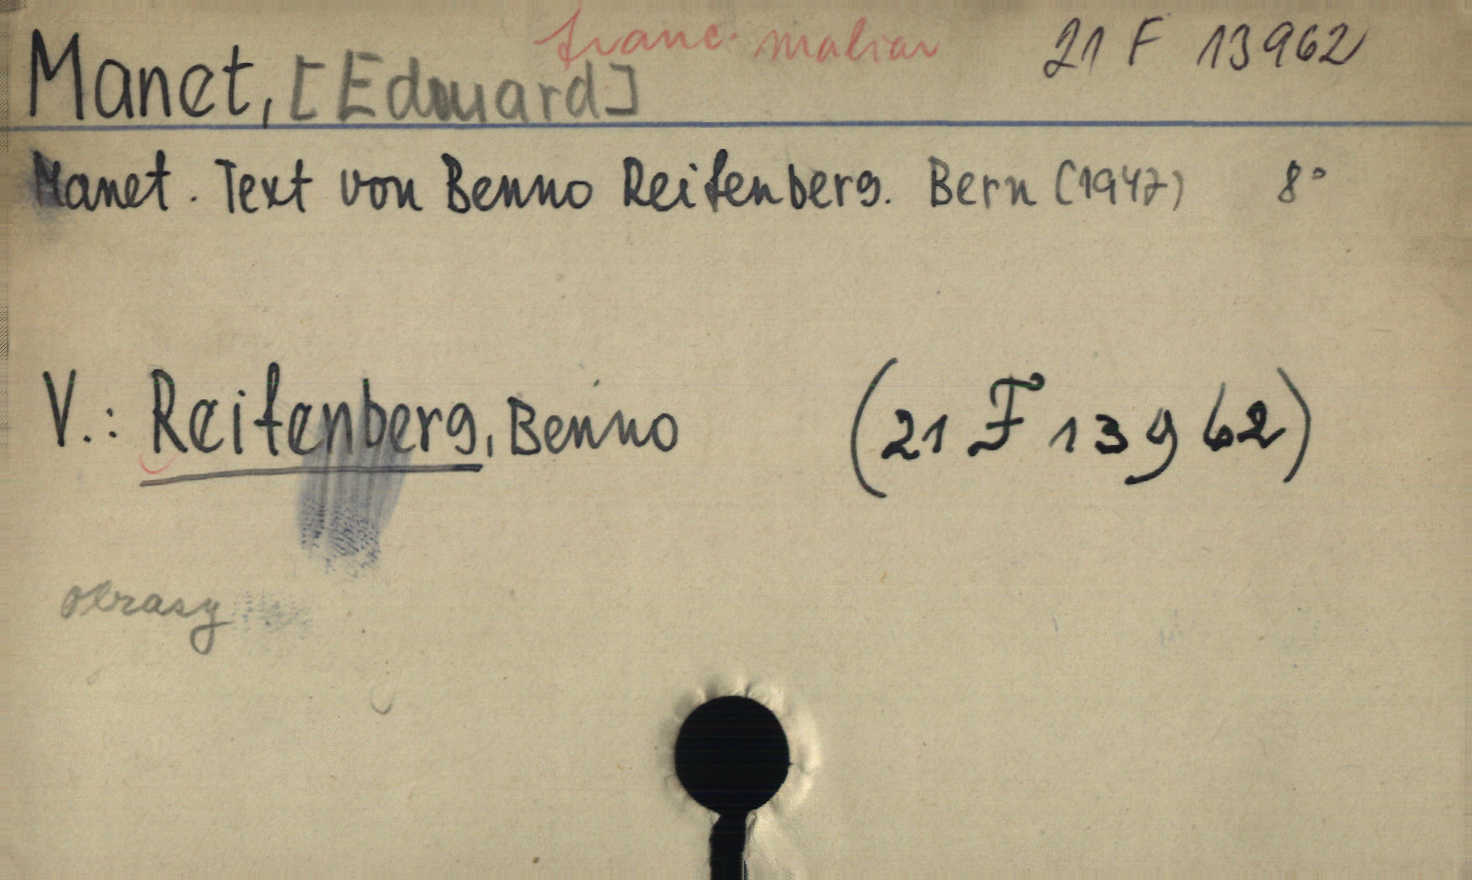 franc. maliar
21 F 13962
Manet, [Edouard]
Manet. Text von Benno Reifenberg. Bern (1947) 8°
V.: Reifenberg, Benno (21 F 13962)
obrasy